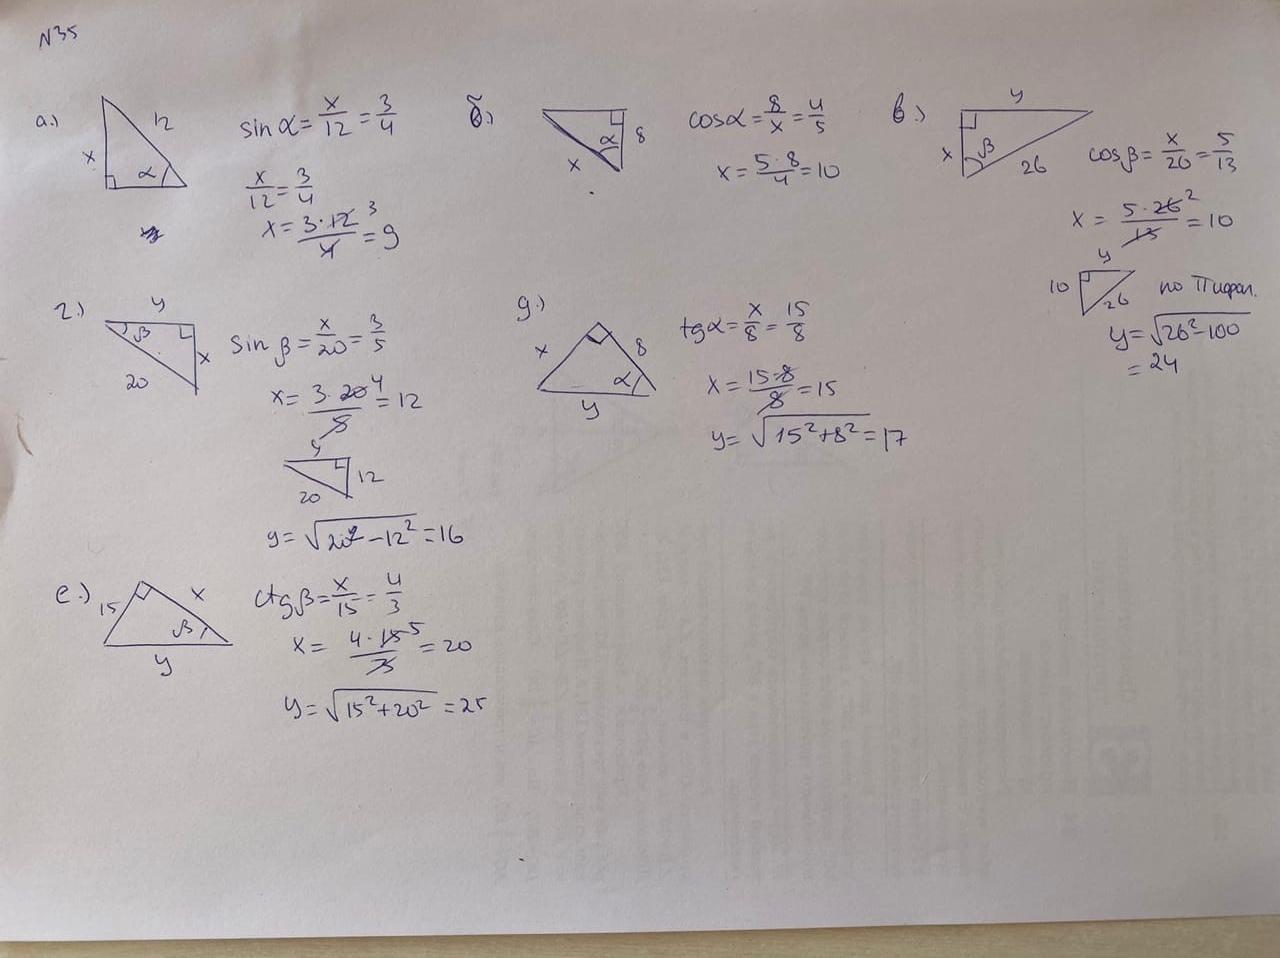 N35
а.)
x
12
α
sin α = x/12 = 3/4
x/12 = 3/4
x = 3·12 3/4 = 9
б.)
α
8
x
cos α = 8/x = 4/5
x = 5·8/4 = 10
в.)
y
x
β
26
cos β = x/26 = 5/13
x = 5·26 2/13 = 10
y
10
26
по Пифаг.
y = √26²-100
= 24
г.)
y
β
x
20
sin β = x/20 = 3/5
x = 3·20 4/5 = 12
y
12
20
y = √20² - 12² = 16
д.)
x
8
α
y
tg α = x/8 = 15/8
x = 15·8/8 = 15
y = √15² + 8² = 17
е.)
15
x
β
y
ctg β = x/15 = 4/3
x = 4·15 5/3 = 20
y = √15² + 20² = 25